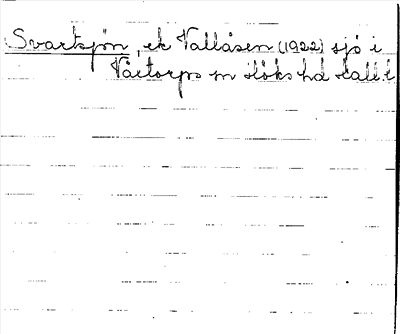 Svartsjön, ek Vallåsen (1922) sjö i
Våxtorps sn Höks hd Hall l